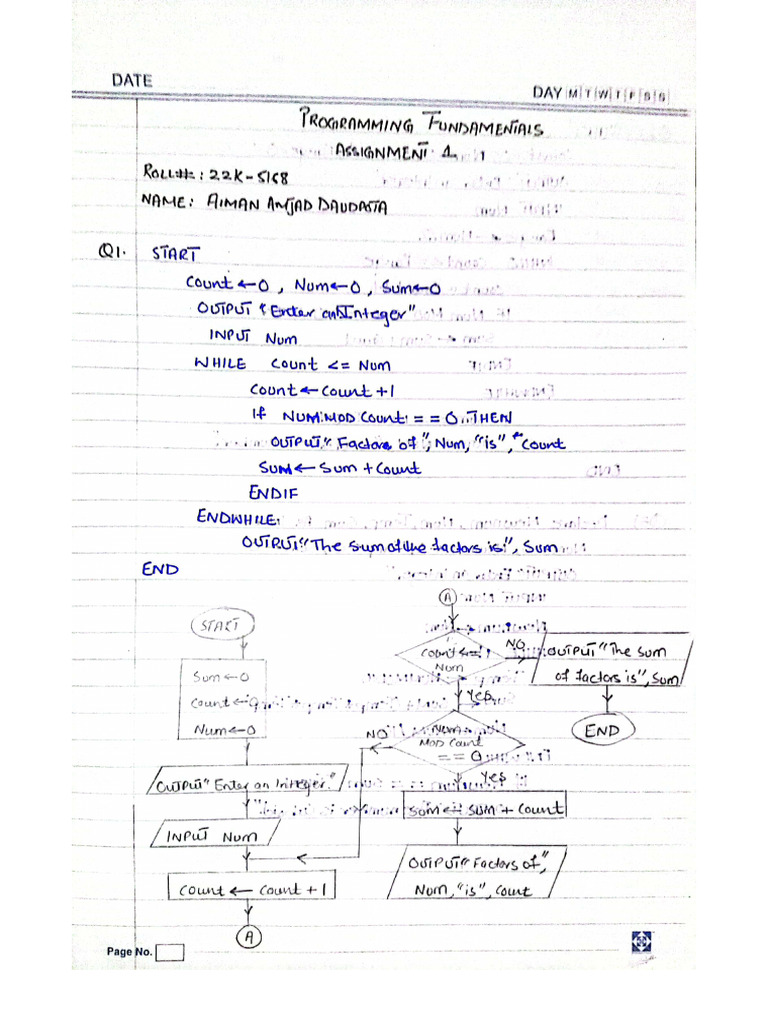 DATE
DAY M T W T F S S
PROGRAMMING FUNDAMENTALS
ASSIGNMENT 1
ROLL#: 22K-5168
NAME: AIMAN AMJAD DAUDASTA
Q1. START
Count ← 0, Num ← 0, Sum ← 0
OUTPUT "Enter an Integer"
INPUT Num
WHILE Count <= Num
Count ← Count + 1
If NUM MOD Count == 0 THEN
OUTPUT "Factors of", Num, "is", Count
SUM ← Sum + Count
ENDIF
ENDWHILE
OUTPUT "The sum of the factors is", Sum
END
START
Sum ← 0
Count ← 0
Num ← 0
OUTPUT "Enter an Integer"
INPUT Num
Count ← Count + 1
A
A
Count <=
Num
NO
OUTPUT "The Sum
of factors is", Sum
END
Yes
NUM
MOD Count
== 0
NO
Yes
Sum ← SUM + Count
OUTPUT "Factors of",
Num, "is", Count
Page No.